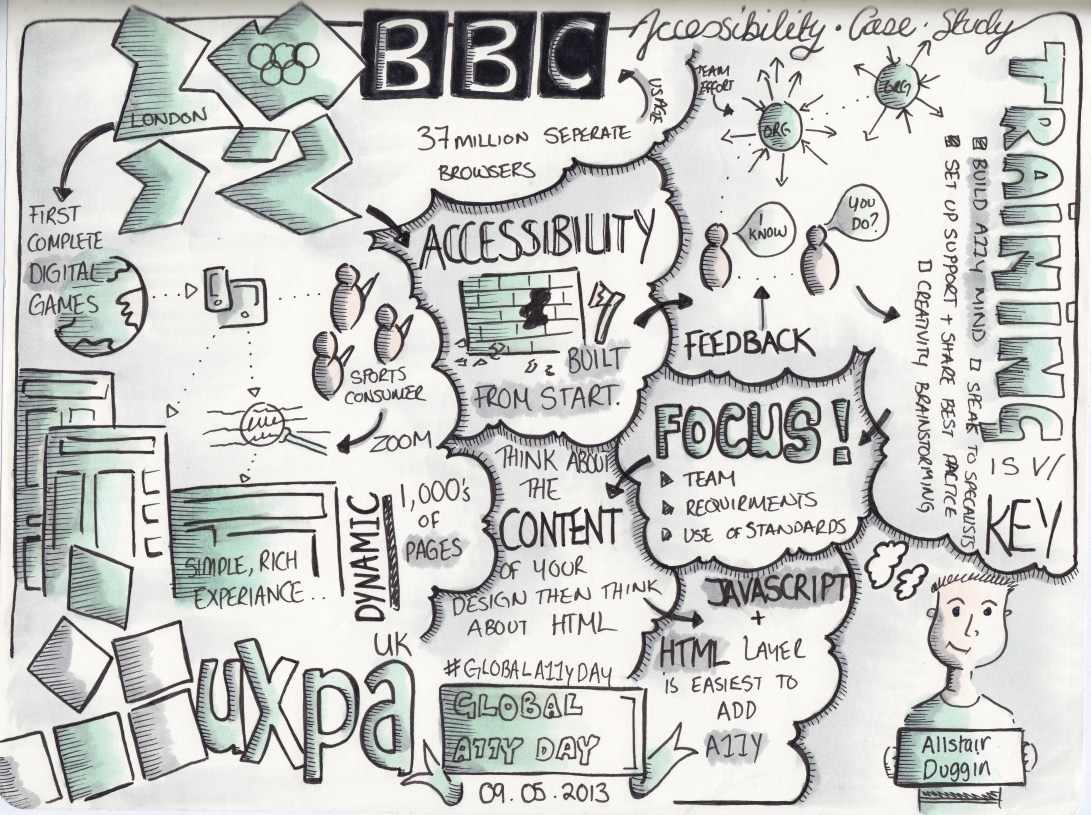 BBC
Accessibility. Case. Study
LONDON
37 MILLION SEPERATE
BROWSERS
USAGE
TEAM
EFFORT
ORG
ORG
FIRST
COMPLETE
DIGITAL
GAMES
SPORTS
CONSUMER
ZOOM
ACCESSIBILITY
BUILT
FROM START.
I
KNOW
YOU
DO?
FEEDBACK
TRAINING
IS V/
KEY
BUILD A11Y MIND
SPEAK TO SPECIALISTS
SET UP SUPPORT + SHARE BEST PRACTICE
CREATIVITY BRAINSTORMING
FOCUS!
TEAM
REQUIRMENTS
USE OF STANDARDS
THINK ABOUT
THE
CONTENT
OF YOUR
DESIGN THEN THINK
ABOUT HTML
DYNAMIC
1,000's
OF
PAGES
SIMPLE, RICH
EXPERIANCE..
JAVASCRIPT
+
HTML LAYER
IS EASIEST TO
ADD
A11Y
UK
uxpa
#GLOBALA11yDAY
GLOBAL
A11Y DAY
09.05.2013
Allstair
Duggin